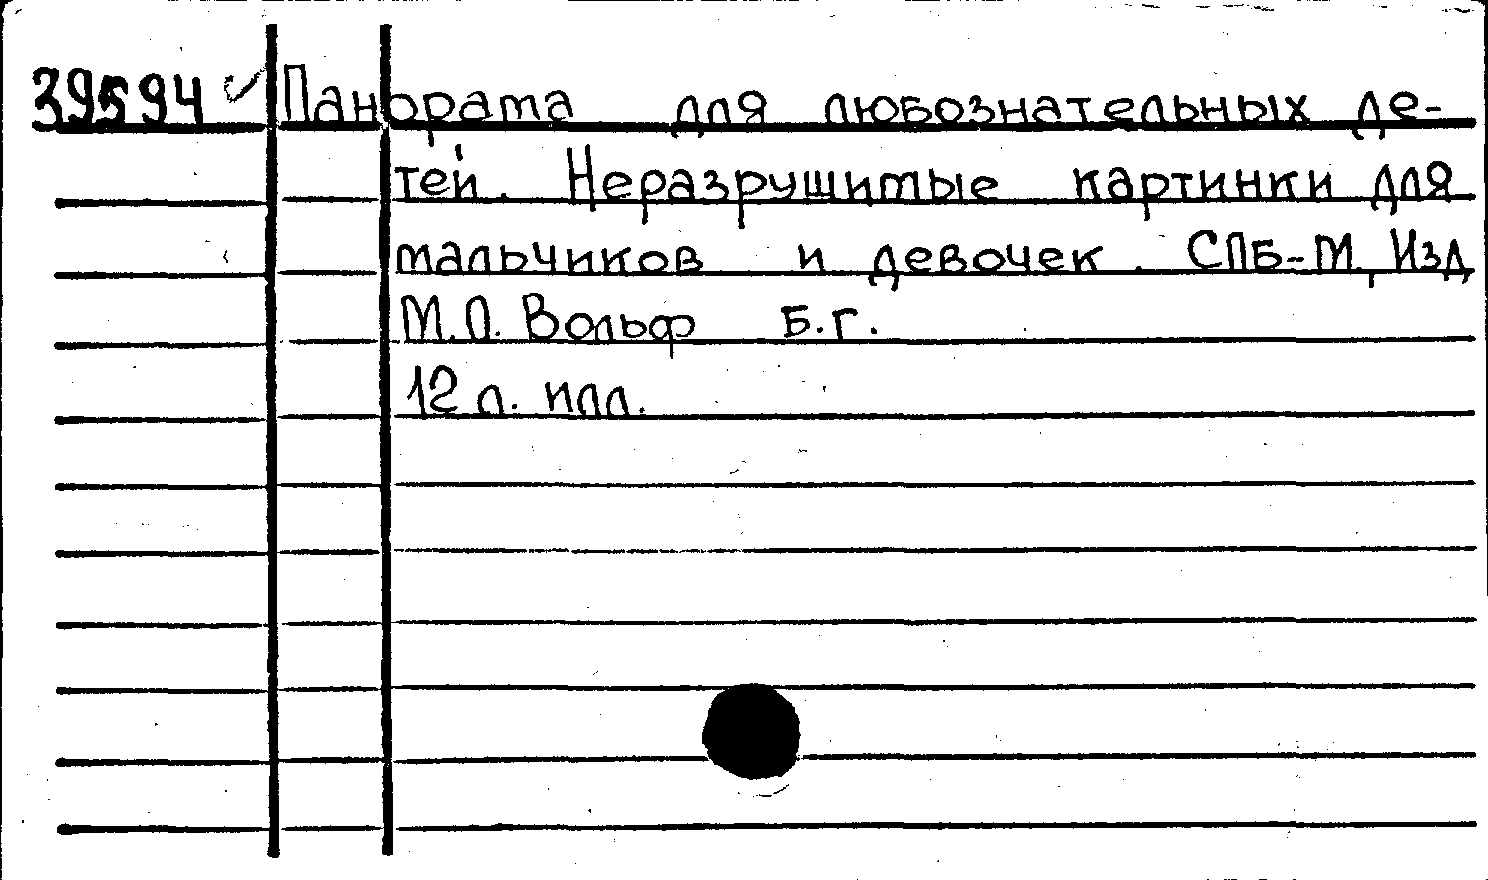 39594 ✓ Панорама для любознательных де-
тей. Неразрушимые картинки для
мальчиков и девочек. СПБ-М, Изд
М.О. Вольф Б.г.
12 л. илл.